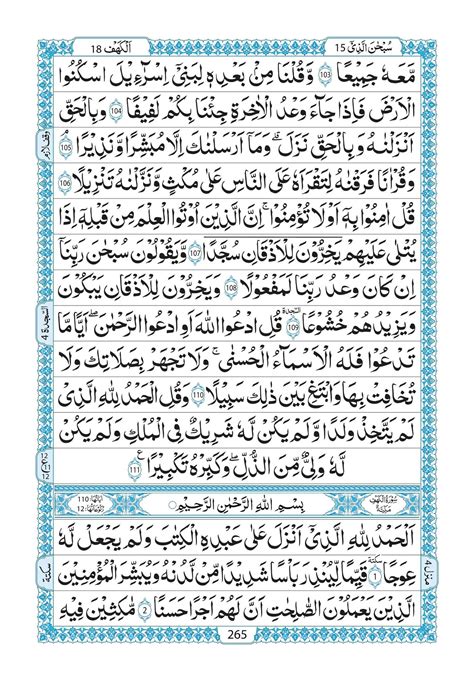 سُبْحٰنَ الَّذِیْۤ 15
اَلْكَهْف 18
مَّعَهٗ جَمِیْعًا 103 وَّقُلْنَا مِنْۢ بَعْدِهٖ لِبَنِیْۤ اِسْرَآءِیْلَ اسْكُنُوا
الْاَرْضَ فَاِذَا جَآءَ وَعْدُ الْاٰخِرَةِ جِئْنَا بِكُمْ لَفِیْفًا 104 وَبِالْحَقِّ
اَنْزَلْنٰهُ وَبِالْحَقِّ نَزَلَ ؕ وَمَاۤ اَرْسَلْنٰكَ اِلَّا مُبَشِّرًا وَّنَذِیْرًا 105
وقف لازم
وَقُرْاٰنًا فَرَقْنٰهُ لِتَقْرَاَهٗ عَلَی النَّاسِ عَلٰی مُكْثٍ وَّنَزَّلْنٰهُ تَنْزِیْلًا 106
قُلْ اٰمِنُوْا بِهٖۤ اَوْ لَا تُؤْمِنُوْا ؕ اِنَّ الَّذِیْنَ اُوْتُوا الْعِلْمَ مِنْ قَبْلِهٖۤ اِذَا
یُتْلٰی عَلَیْهِمْ یَخِرُّوْنَ لِلْاَذْقَانِ سُجَّدًا 107 وَّیَقُوْلُوْنَ سُبْحٰنَ رَبِّنَاۤ
اِنْ كَانَ وَعْدُ رَبِّنَا لَمَفْعُوْلًا 108 وَیَخِرُّوْنَ لِلْاَذْقَانِ یَبْكُوْنَ
وَیَزِیْدُهُمْ خُشُوْعًا 109 قُلِ ادْعُوا اللّٰهَ اَوِ ادْعُوا الرَّحْمٰنَ ؕ اَیًّا مَّا
السجدة
السجدة 4
تَدْعُوْا فَلَهُ الْاَسْمَآءُ الْحُسْنٰی ۚ وَلَا تَجْهَرْ بِصَلَاتِكَ وَلَا
تُخَافِتْ بِهَا وَابْتَغِ بَیْنَ ذٰلِكَ سَبِیْلًا 110 وَقُلِ الْحَمْدُ لِلّٰهِ الَّذِیْ
لَمْ یَتَّخِذْ وَلَدًا وَّلَمْ یَكُنْ لَّهٗ شَرِیْكٌ فِی الْمُلْكِ وَلَمْ یَكُنْ
لَّهٗ وَلِیٌّ مِّنَ الذُّلِّ وَكَبِّرْهُ تَكْبِیْرًا 111
سُوْرَةُ الْكَهْفِ مَكِّیَّةٌ
بِسْمِ اللّٰهِ الرَّحْمٰنِ الرَّحِیْمِ
اٰیاتها: 110
رکوعاتها: 12
اَلْحَمْدُ لِلّٰهِ الَّذِیْۤ اَنْزَلَ عَلٰی عَبْدِهِ الْكِتٰبَ وَلَمْ یَجْعَلْ لَّهٗ
منزل 4
عِوَجًا 1 قَیِّمًا لِّیُنْذِرَ بَاْسًا شَدِیْدًا مِّنْ لَّدُنْهُ وَیُبَشِّرَ الْمُؤْمِنِیْنَ
سكتة
سكتة
الَّذِیْنَ یَعْمَلُوْنَ الصّٰلِحٰتِ اَنَّ لَهُمْ اَجْرًا حَسَنًا 2 مَّاكِثِیْنَ فِیْهِ
265